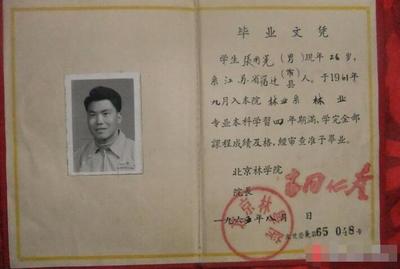 毕业文凭
学生 张 (男)现年26岁,
系江苏省宿迁(市县)人。于1961年
九月入本院林业系林业
专业本科学習四年期滿,学完全部
課程成績及格,經审查准予畢业。
北京林学院
院長
一九六五年八月 日
北京林
650 8号